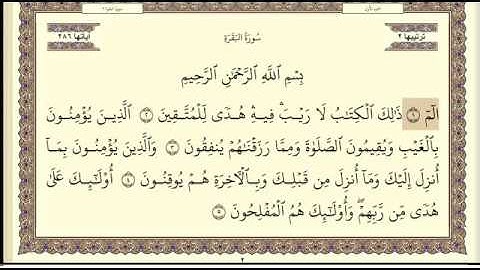 ترتيبها ٢
سُورَةُ البَقَرَةِ
آياتها ٢٨٦
بِسْمِ اللَّهِ الرَّحْمَٰنِ الرَّحِيمِ
الٓمٓ ١ ذَٰلِكَ الْكِتَابُ لَا رَيْبَ ۛ فِيهِ هُدًى لِلْمُتَّقِينَ ٢ الَّذِينَ يُؤْمِنُونَ
بِالْغَيْبِ وَيُقِيمُونَ الصَّلَوٰةَ وَمِمَّا رَزَقْنَاهُمْ يُنفِقُونَ ٣ وَالَّذِينَ يُؤْمِنُونَ بِمَا
أُنزِلَ إِلَيْكَ وَمَا أُنزِلَ مِن قَبْلِكَ وَبِالْآخِرَةِ هُمْ يُوقِنُونَ ٤ أُولَٰئِكَ عَلَىٰ
هُدًى مِن رَّبِّهِمْ ۖ وَأُولَٰئِكَ هُمُ الْمُفْلِحُونَ ٥
٢